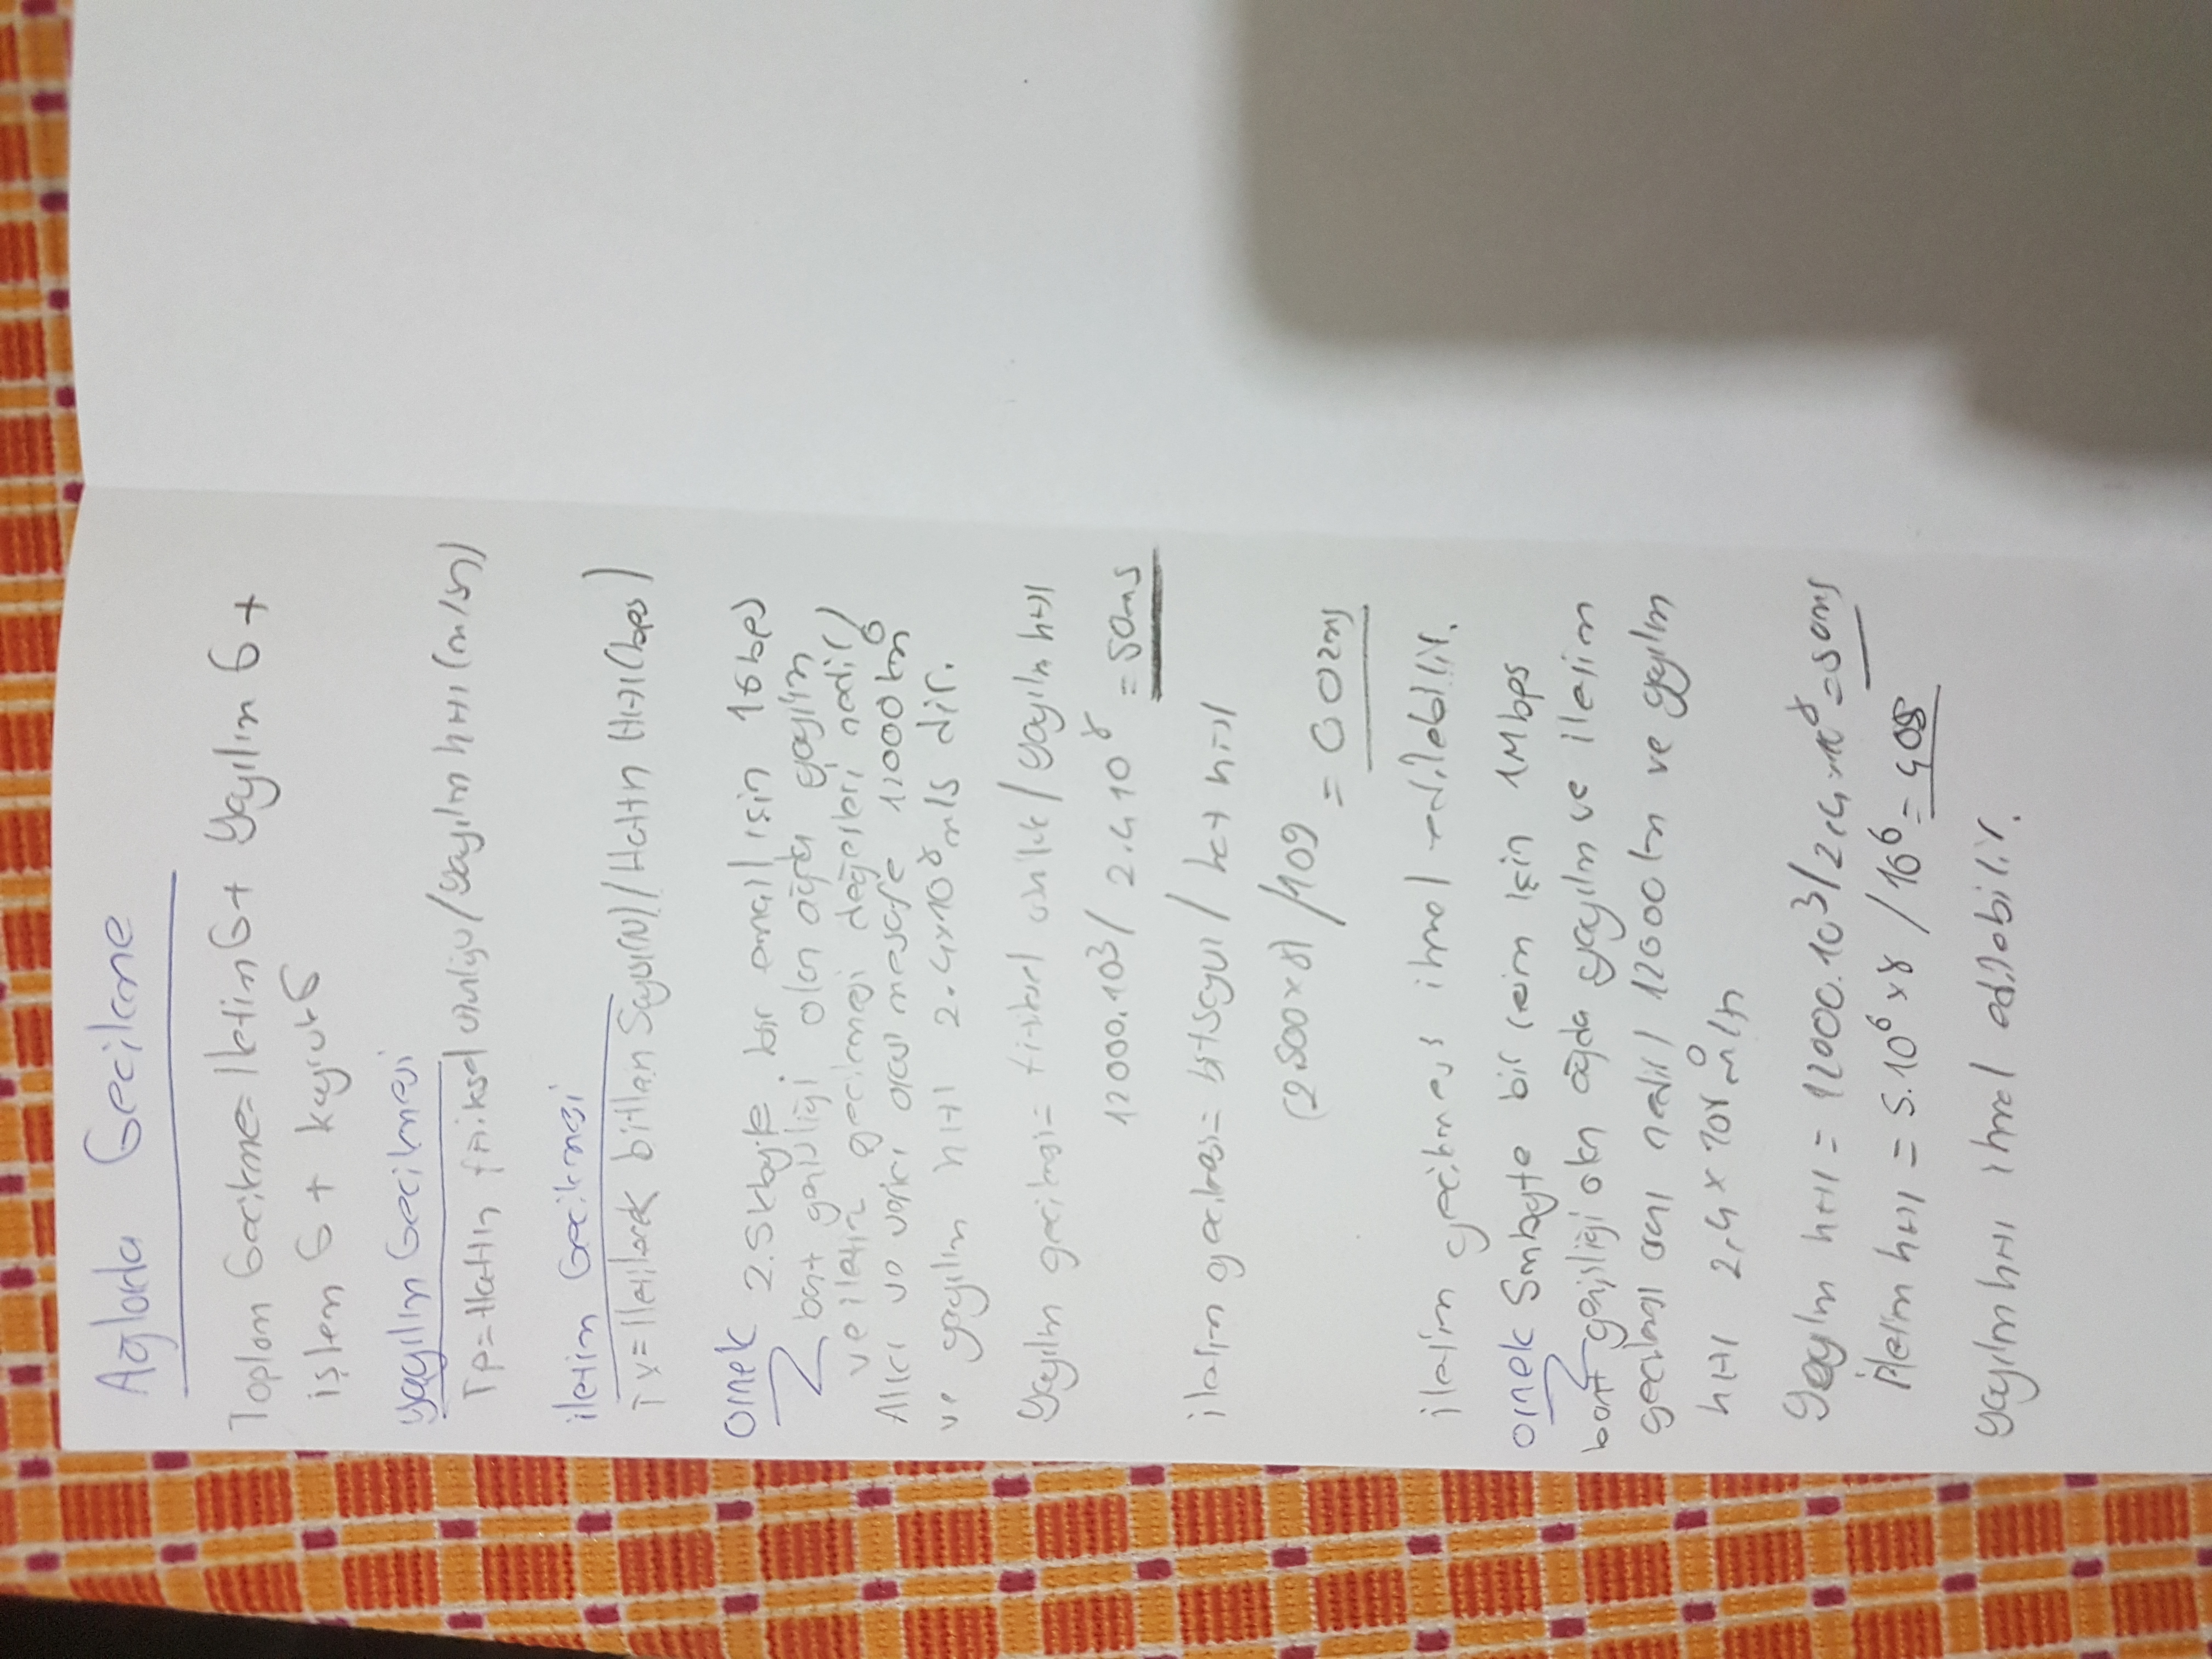 Ağlarda Gecikme
Toplam Gecikme= İletim G+ Yayılım G +
işlem G + kuyruk G
yayılım Gecikmesi
Tp=Hattın fiziksel uzunluğu/yayılım hızı (m/sn)
iletim Gecikmesi
Tx=İletilecek bitlerin Sayısı(N)/Hattın Hızı(bps)
örnek 2.5kbyte bir email için 1Gbps
bant genişliği olan ağda yayılım
ve iletim gecikmesi değerleri nedir?
Alıcı ve verici arası mesafe 12000 km
ve yayılım hızı 2.4x10⁸ m/s dir.
Yayılım gecikmesi= fiziksel uzunluk / yayılım hızı
12000.10³/ 2.4 10⁸ = 50ms
iletim gecikmesi= bit sayısı / hat hızı
(2.500x8) /109 = 0 02ms
iletim gecikmesi ihmal edilebilir.
örnek 5mbyte bir resim için 1Mbps
bant genişliği olan ağda yayılım ve iletim
gecikmesi oranı nedir? 12000 km ve yayılım
hızı 2,4 x 108 m/sn
Yayılım hızı = 12000.10³/2,4x10⁸=50ms
iletim hızı = 5.10⁶ x8 / 10⁶ = 40s
yayılım hızı ihmal edilebilir.